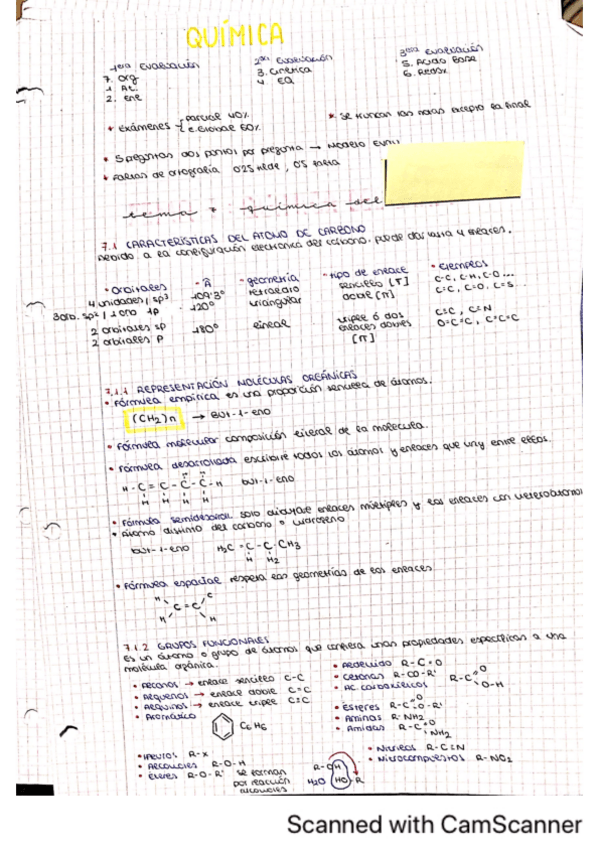 QUÍMICA
1era EVALUACIÓN
7. Org
1. At.
2. Ene
2da EVALUACIÓN
3. Cinética
4. EQ
3era EVALUACIÓN
5. Ácido Base
6. Redox
* Exámenes { parcial 40%
e. global 60%
* Se truncan las notas excepto la final
* 5 preguntas dos puntos por pregunta → Modelo
* Faltas de ortografía 0'25 tilde, 0'5 falta
tema 7 química
7.1 CARACTERÍSTICAS DEL ÁTOMO DE CARBONO
Debido a la configuración electrónica del carbono. puede dar hasta 4 enlaces.
• orbitales
• geometría
• tipo de enlace
• Ejemplos
4 unidades / sp³
109'3°
tetraedro
sencillo
C-C, C-H, C-O...
120°
triangular
doble [π]
C=C, C=O, C=S...
2 orbitales sp
2 orbitales P
180°
lineal
triple ó dos
enlaces dobles
[π]
C≡C, C≡N
O=C=C, C=C=C
7.1.1 REPRESENTACIÓN MOLÉCULAS ORGÁNICAS
• Fórmula empírica es una proporción sencilla de átomos.
(CH₂)n → But-1-eno
• Fórmula molecular composición literal de la molécula.
• Fórmula desarrollada escribir todos los átomos y enlaces que hay entre ellos.
H-C=C-C-C-H but-1-eno
H H H H
• Fórmula semidesarrol. solo dibujar enlaces múltiples y los enlaces con heteroátomo
• átomo distinto del carbono o hidrógeno
but-1-eno H₂C=C-C-CH₃
H H₂
• Fórmula espacial respeta las geometrías de los enlaces
H H
C=C
H H
7.1.2 GRUPOS FUNCIONALES
Es un átomo o grupo de átomos que confiera unas propiedades específicas a una
molécula orgánica.
• Alcanos → enlace sencillo C-C
• Alquenos → enlace doble C=C
• Alquinos → enlace triple C≡C
• Aromático
C₆H₆
• Aldehído R-C=O
• Cetonas R-CO-R'
• Ac. carboxílicos R-C=O
O-H
• Ésteres R-C=O
O-R'
• Aminas R-NH₂
• Amidas R-C=O
NH₂
• Nitrilos R-C≡N
• Nitrocompuestos R-NO₂
R-X
• Alcoholes R-O-H
• Éteres R-O-R' se forman
por reacción
alcoholes
R-OH
H₂O HO-R
Scanned with CamScanner